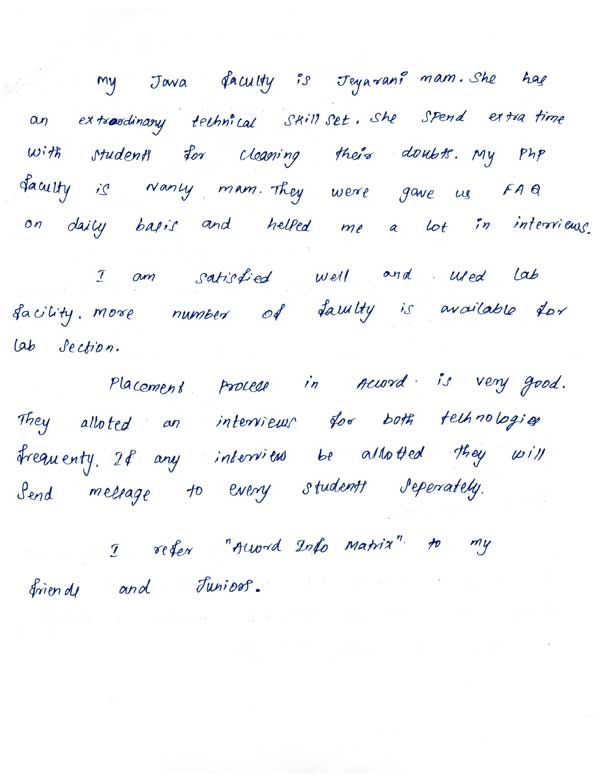 My Java faculty is Jeyarani mam. She has
an extraodinary technical skill set. She spend extra time
with students for cleaning their doubts. My PhP
faculty is Nanly mam. They were gave us FAQ
on daily basis and helped me a lot in interviews.
I am satisfied well and used lab
facility. more number of faculty is available for
lab section.
Placement process in Accord is very good.
They alloted an interviews for both technologies
frequenty. If any interview be allotted they will
send message to every students seperately.
I refer "Accord Info Matrix" to my
friends and Juniors.